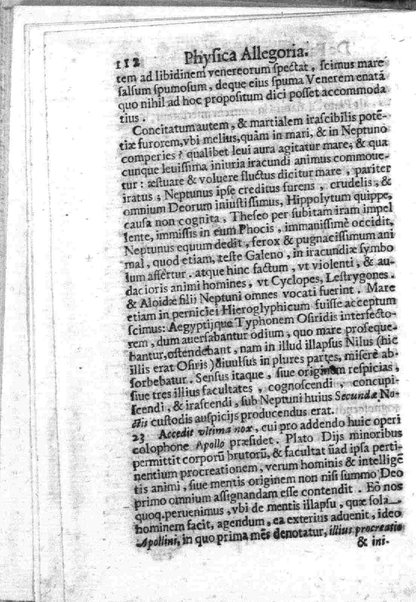 112 Physica Allegoria.
tem ad libidinem venereorum spectat, scimus mare
salsum spumosum, deque eius spuma Venerem enatã
quo nihil ad hoc propositum dici posset accommoda
tius.
Concitatum autem, & martialem irascibilis potẽ-
tiæ furorem, vbi melius, quàm in mari, & in Neptuno
comperies? qualibet leui aura agitatur mare, & qua
cunque leuissima iniuria iracundi animus commoue-
tur: æstuare & voluere fluctus dicitur mare, pariter
iratus; Neptunus ipse creditur furens, crudelis, &
omnium Deorum iniustissimus, Hippolytum quippe,
causa non cognita, Theseo per subitam iram impel
lente, immissis in eum Phocis, immanissimè occidit,
Neptunus equum dedit, ferox & pugnacissimum ani
mal, quod etiam, teste Galeno, in iracundiæ symbo
lum assertur. atque hinc factum, vt violenti, & au-
daciores animi homines, vt Cyclopes, Lestrygones.
& Aloidæ filij Neptuni omnes vocati fuerint. Mare
etiam in perniciei Hieroglyphicum fuisse acceptum
scimus: Aegyptijque Typhonem Osiridis interfecto-
rem, dum auersabantur odium, quo mare proseque-
bantur, ostendebant, nam in illud illapsus Nilus (hic
illis erat Osiris) diuulsus in plures partes, miserè ab-
sorbebatur. Sensus itaque, siue originem respicias,
siue tres illius facultates, cognoscendi, concupi-
scendi, & irascendi, sub Neptuni huius Secundæ No-
ctis custodis auspicijs producendus erat.
23 Accedit vltima nox, cui pro addendo huic operi
colophone Apollo præsidet. Plato Dijs minoribus
permittit corporũ brutorũ, & facultatũ ad ipsa perti-
nentium procreationem, verum hominis & intelligẽ
tis animi, siue mentis originem non nisi summo Deo
primo omnium assignandam esse contendit. Eò nos
quoq. peruenimus, vbi de mentis illapsu, quæ sola
hominem facit, agendum, ea exterius aduenit, ideo
Apollini, in quo prima mẽs denotatur, illius procreatio
& ini-